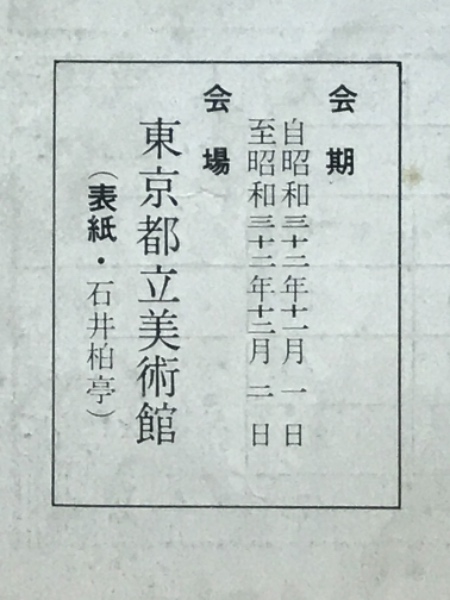 会期
自昭和三十二年十一月一日
至昭和三十二年十二月二日
会場
東京都立美術館
（表紙・石井柏亭）